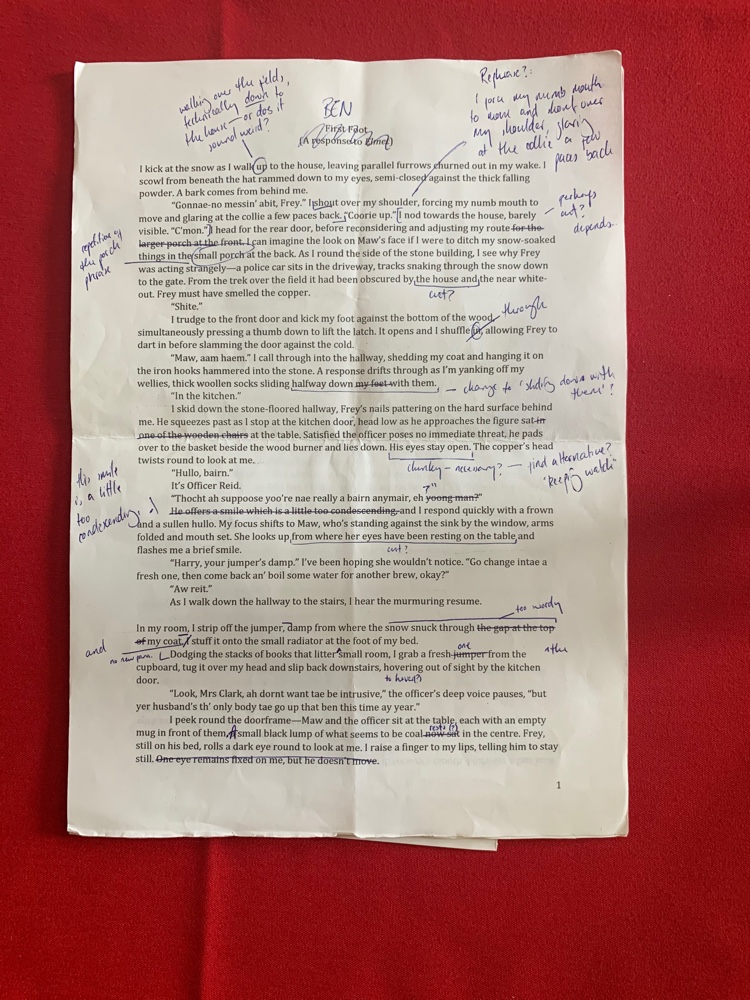 walking over the field,
technically down to
the house — or does it
sound weird?
BEN
Rephrase?:
I force my numb mouth
to move and shout over
my shoulder, glaring
at the collie a few
paces back
First Foot
(A response to Elmet)
I kick at the snow as I walk up to the house, leaving parallel furrows churned out in my wake. I
scowl from beneath the hat rammed down to my eyes, semi-closed against the thick falling
powder. A bark comes from behind me.
“Gonnae-no messin’ abit, Frey.” I shout over my shoulder, forcing my numb mouth to
move and glaring at the collie a few paces back. “Coorie up.” I nod towards the house, barely
visible. “C’mon.” I head for the rear door, before reconsidering and adjusting my route for the
larger porch at the front. I can imagine the look on Maw’s face if I were to ditch my snow-soaked
things in the small porch at the back. As I round the side of the stone building, I see why Frey
was acting strangely—a police car sits in the driveway, tracks snaking through the snow down
to the gate. From the trek over the field it had been obscured by the house and the near white-
out. Frey must have smelled the copper.
perhaps
cut?
depends..
repetition of
the porch
phrase
cut?
“Shite.”
I trudge to the front door and kick my foot against the bottom of the wood,
simultaneously pressing a thumb down to lift the latch. It opens and I shuffle in, allowing Frey to
through
dart in before slamming the door against the cold.
“Maw, aam haem.” I call through into the hallway, shedding my coat and hanging it on
the iron hooks hammered into the stone. A response drifts through as I’m yanking off my
wellies, thick woollen socks sliding halfway down my feet with them.
— change to ‘sliding down with
them’?
“In the kitchen.”
I skid down the stone-floored hallway, Frey’s nails pattering on the hard surface behind
me. He squeezes past as I stop at the kitchen door, head low as he approaches the figure sat in
one of the wooden chairs at the table. Satisfied the officer poses no immediate threat, he pads
over to the basket beside the wood burner and lies down. His eyes stay open. The copper’s head
twists round to look at me.
clunky – necessary? — find alternative?
‘keeping watch’
“Hullo, bairn.”
It’s Officer Reid.
“Thocht ah suppoose you’re nae really a bairn anymair, eh young man?”
?”
He offers a smile which is a little too condescending, and I respond quickly with a frown
his smile
is a little
too
condescending,
and a sullen hullo. My focus shifts to Maw, who’s standing against the sink by the window, arms
folded and mouth set. She looks up from where her eyes have been resting on the table and
flashes me a brief smile.
cut?
“Harry, your jumper’s damp.” I’ve been hoping she wouldn’t notice. “Go change intae a
fresh one, then come back an’ boil some water for another brew, okay?”
“Aw reit.”
As I walk down the hallway to the stairs, I hear the murmuring resume.
too wordy
In my room, I strip off the jumper, damp from where the snow snuck through the gap at the top
of my coat. I stuff it onto the small radiator at the foot of my bed.
and
no new para.
Dodging the stacks of books that litter small room, I grab a fresh jumper from the
one
^the
cupboard, tug it over my head and slip back downstairs, hovering out of sight by the kitchen
door.
to hover?)
“Look, Mrs Clark, ah dornt want tae be intrusive,” the officer’s deep voice pauses, “but
yer husband’s th’ only body tae go up that ben this time ay year.”
I peek round the doorframe—Maw and the officer sit at the table, each with an empty
mug in front of them, A small black lump of what seems to be coal now sat in the centre. Frey,
rests (?)
still on his bed, rolls a dark eye round to look at me. I raise a finger to my lips, telling him to stay
still. One eye remains fixed on me, but he doesn’t move.
1